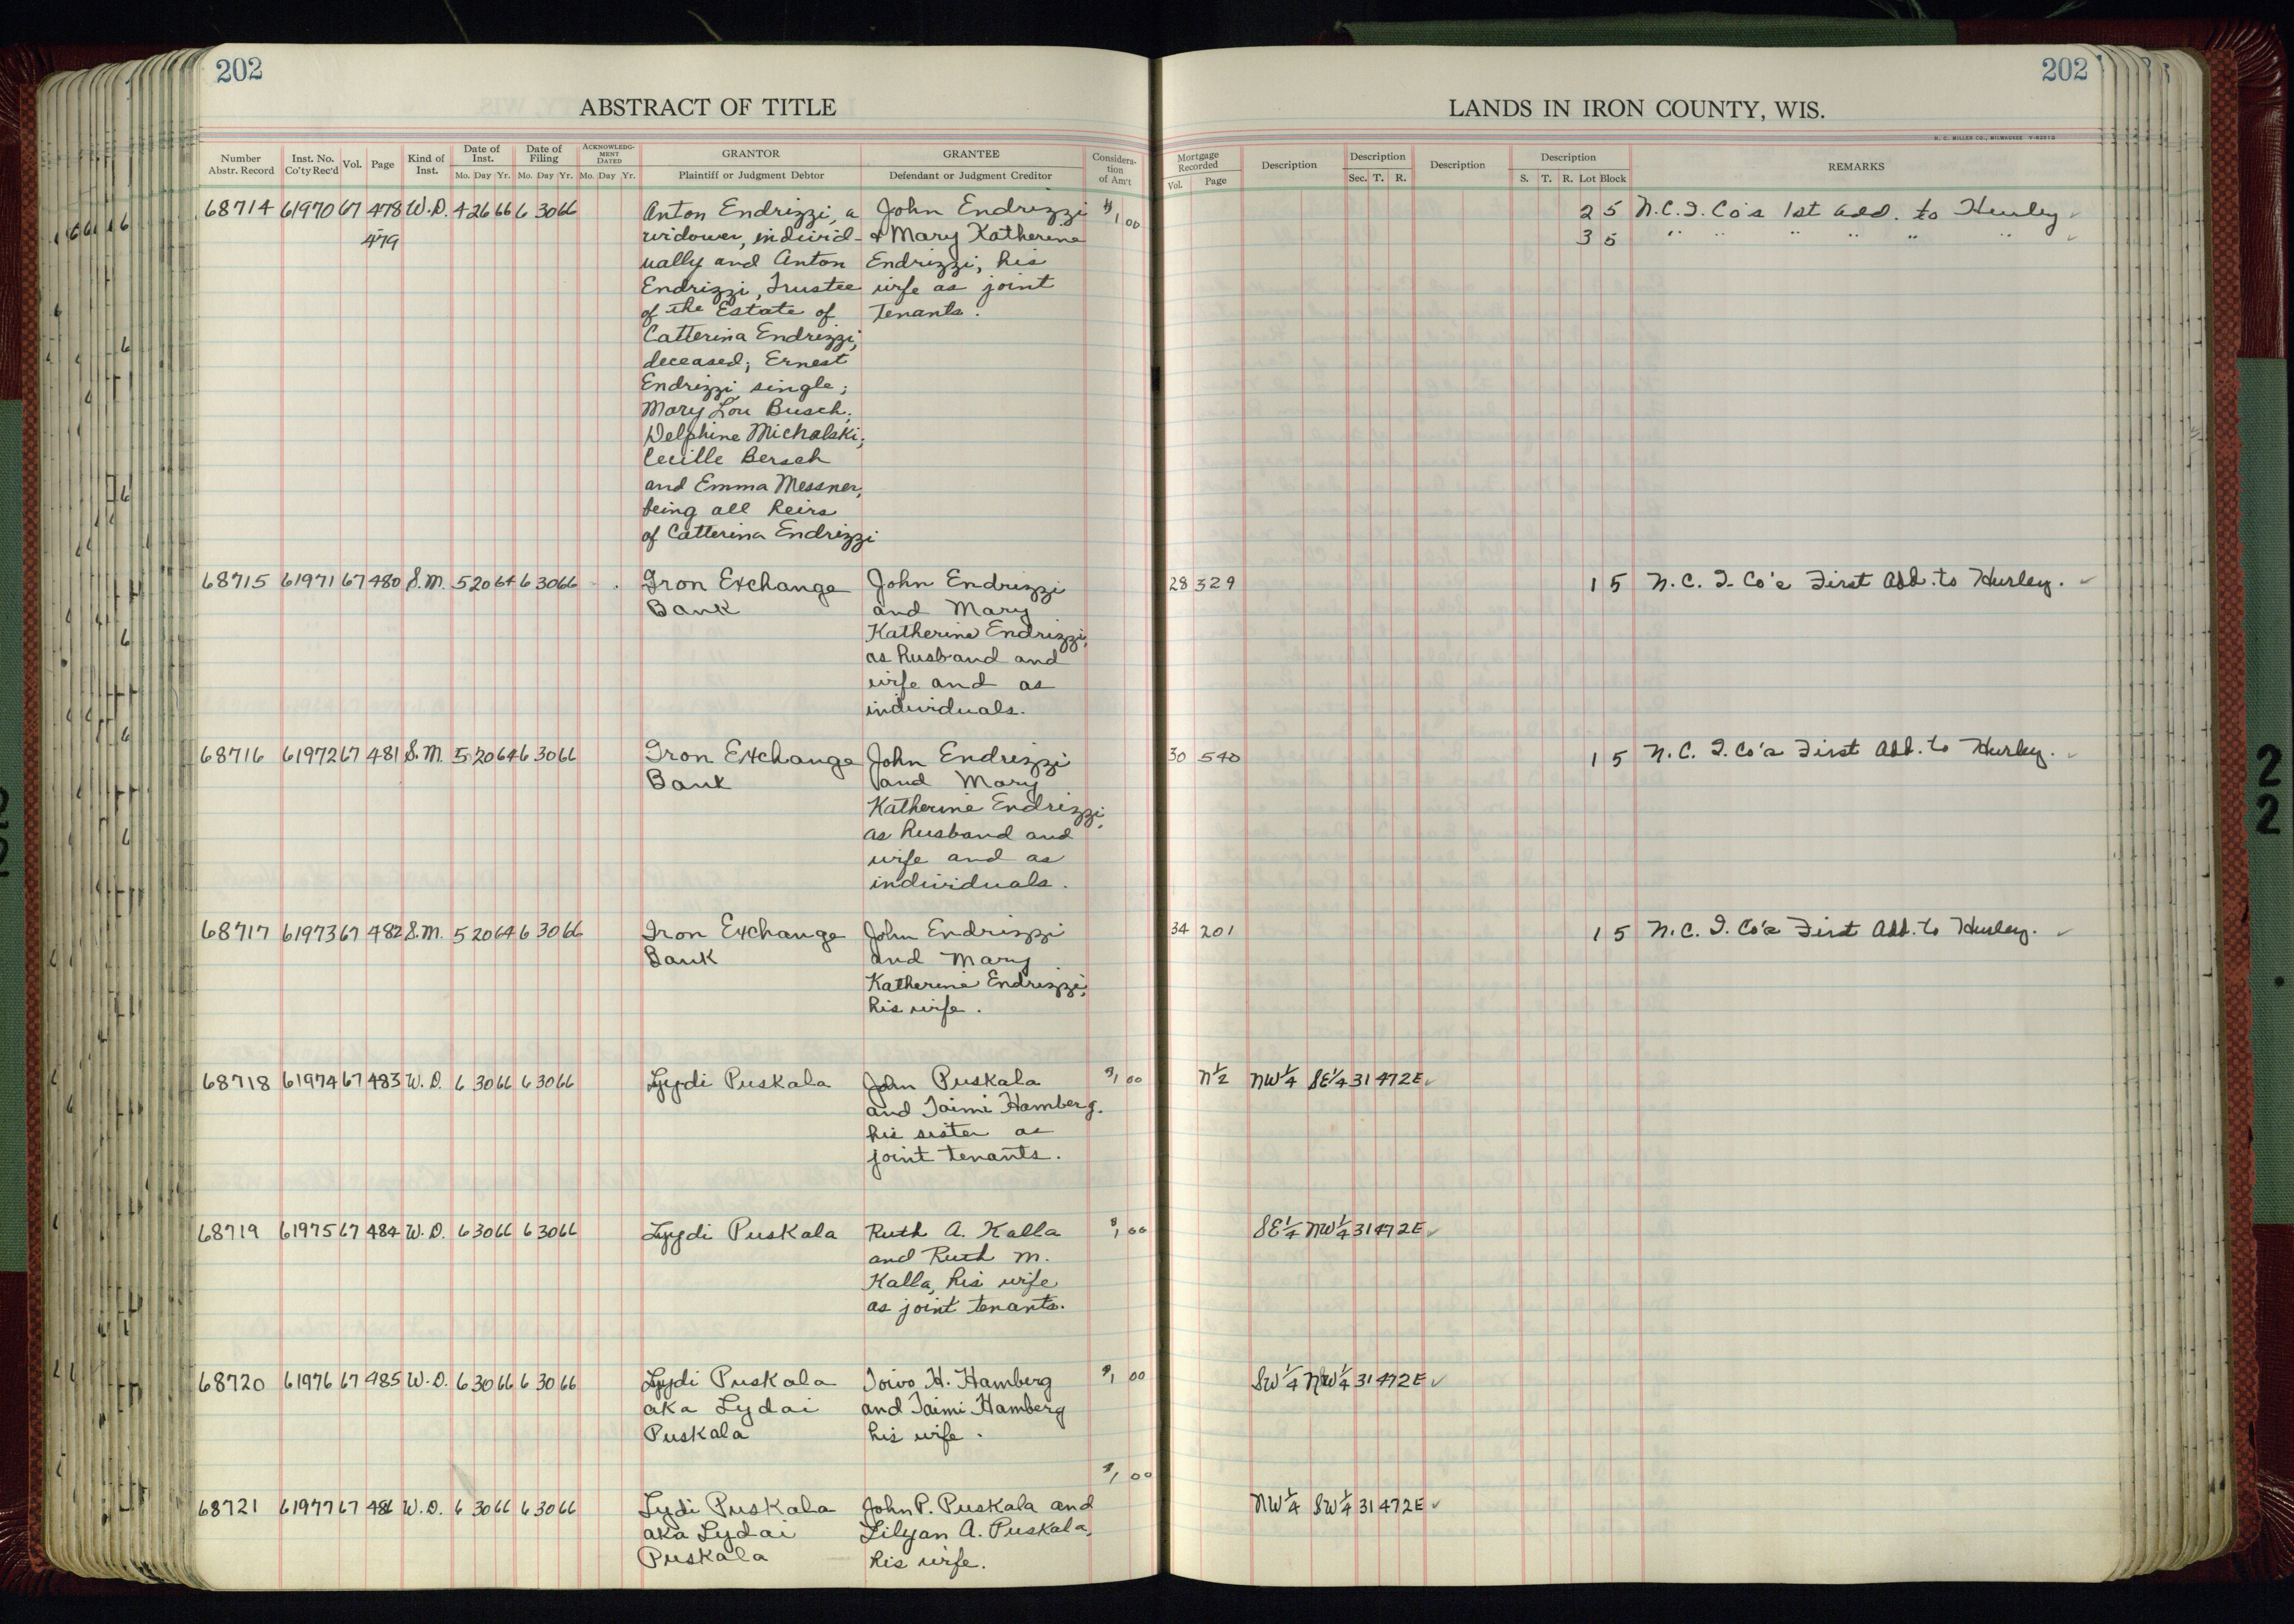 202
ABSTRACT OF TITLE
Number Abstr. Record | Inst. No. Co'ty Rec'd | Vol. | Page | Kind of Inst. | Date of Inst. Mo. Day Yr. | Date of Filing Mo. Day Yr. | ACKNOWLEDGMENT DATED Mo. Day Yr. | GRANTOR Plaintiff or Judgment Debtor | GRANTEE Defendant or Judgment Creditor | Consideration of Am't
68714 61970 67 478 W.D. 4 26 66 6 30 66 Anton Endrizzi, a John Endrizzi $1 00
479 widower, individ- & Mary Katherine
ually and Anton Endrizzi, his
Endrizzi, Trustee wife as joint
of the Estate of Tenants.
Catterina Endrizzi,
deceased; Ernest
Endrizzi, single;
Mary Lou Busch;
Delphine Michalski;
Cecille Bersch
and Emma Messner,
being all heirs
of Catterina Endrizzi
68715 61971 67 480 S.M. 5 20 64 6 30 66 Iron Exchange John Endrizzi
Bank and Mary
Katherine Endrizzi,
as husband and
wife and as
individuals.
68716 61972 67 481 S.M. 5 20 64 6 30 66 Iron Exchange John Endrizzi
Bank and Mary
Katherine Endrizzi,
as husband and
wife and as
individuals.
68717 61973 67 482 S.M. 5 20 64 6 30 66 Iron Exchange John Endrizzi
Bank and Mary
Katherine Endrizzi,
his wife.
68718 61974 67 483 W.D. 6 30 66 6 30 66 Lydi Puskala John Puskala $1 00
and Taimi Hamberg.
his sister as
joint tenants.
68719 61975 67 484 W.D. 6 30 66 6 30 66 Lydi Puskala Ruth A. Kalla $1 00
and Ruth M.
Kalla, his wife
as joint tenants.
68720 61976 67 485 W.D. 6 30 66 6 30 66 Lydi Puskala Toivo H. Hamberg $1 00
aka Lydai and Taimi Hamberg
Puskala his wife.
$1 00
68721 61977 67 486 W.D. 6 30 66 6 30 66 Lydi Puskala John P. Puskala and
aka Lydai Lilyan A. Puskala,
Puskala his wife.
202
LANDS IN IRON COUNTY, WIS.
H. C. MILLER CO., MILWAUKEE
Mortgage Recorded Vol. Page | Description | Description Sec. T. R. | Description | Description S. T. R. Lot Block | REMARKS
2 5 N.C.I. Co's 1st Add. to Hurley ✓
3 5 " " " " " " ✓
28 329 1 5 N.C.I. Co's First Add. to Hurley. ✓
30 540 1 5 N.C.I. Co's First Add. to Hurley. ✓
34 201 1 5 N.C.I. Co's First Add. to Hurley. ✓
N½ NW¼ SE¼ 31 47 2E ✓
SE¼ NW¼ 31 47 2E ✓
SW¼ NW¼ 31 47 2E ✓
NW¼ SW¼ 31 47 2E ✓
2
2